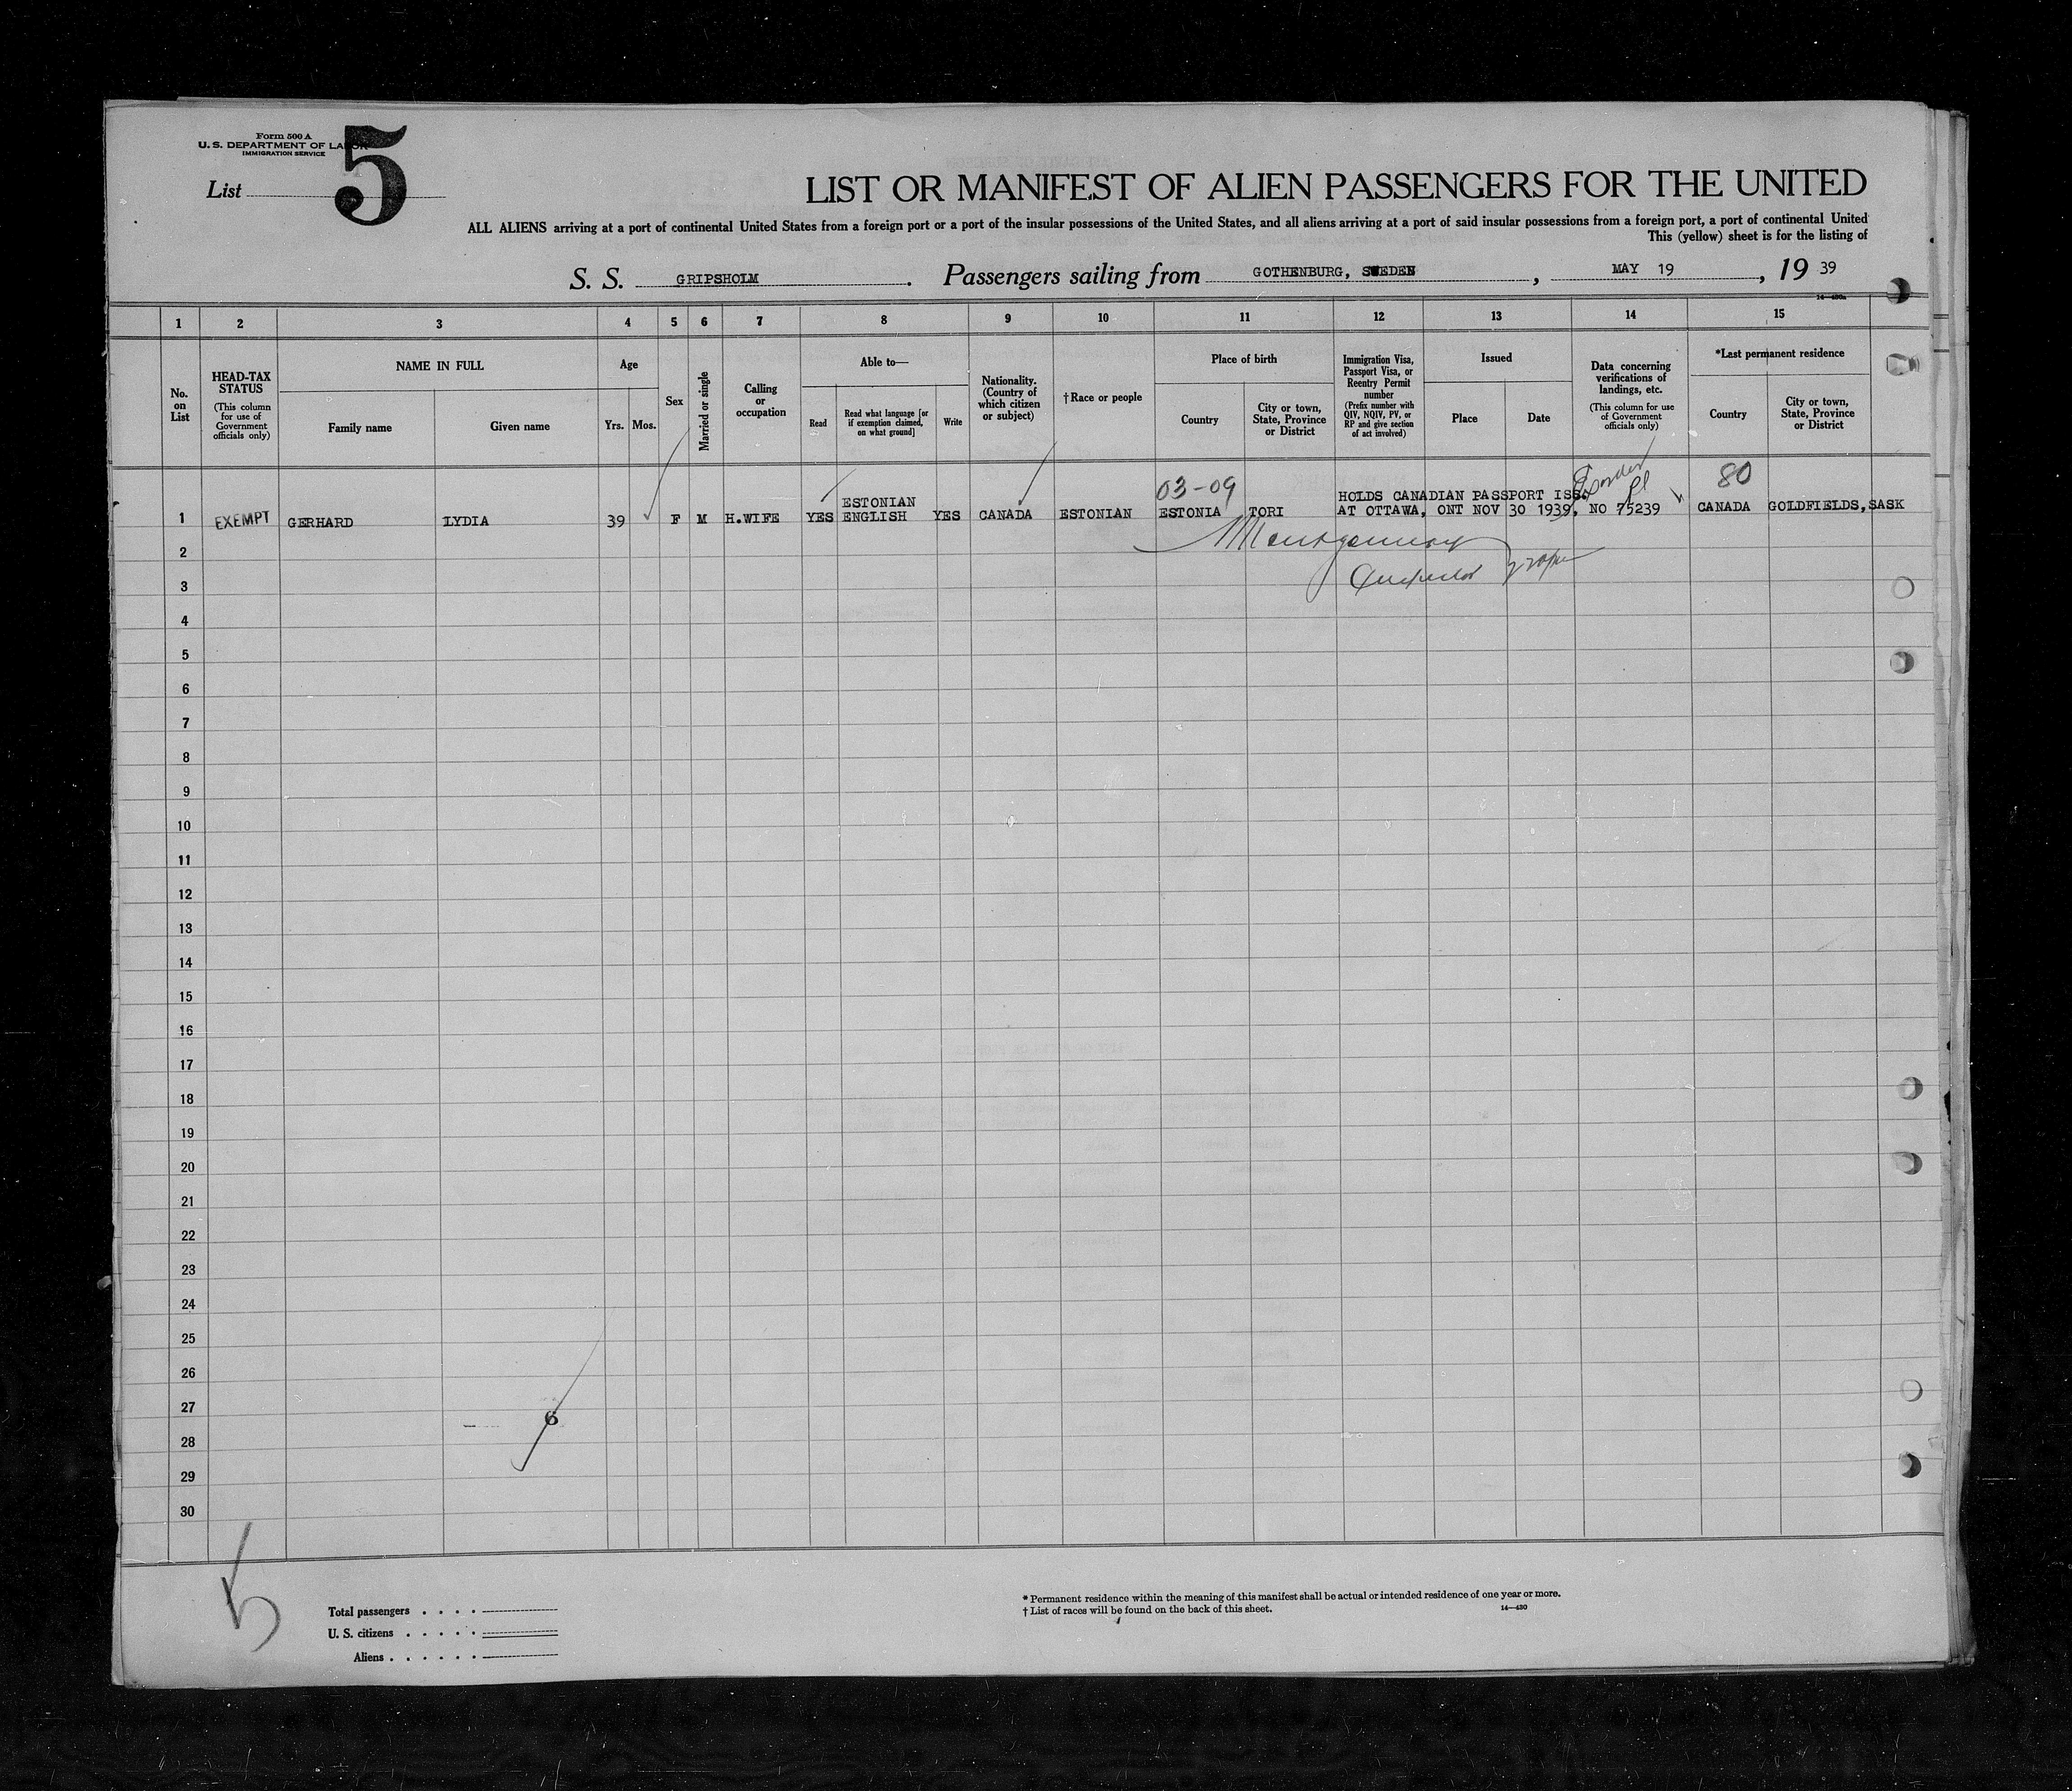 Form 500 A
U. S. DEPARTMENT OF LABOR
IMMIGRATION SERVICE
List 5
LIST OR MANIFEST OF ALIEN PASSENGERS FOR THE UNITED
ALL ALIENS arriving at a port of continental United States from a foreign port or a port of the insular possessions of the United States, and all aliens arriving at a port of said insular possessions from a foreign port, a port of continental United
This (yellow) sheet is for the listing of
S. S. GRIPSHOLM. Passengers sailing from GOTHENBURG, SWEDEN, MAY 19, 19 39
14—430a
1 2 3 4 5 6 7 8 9 10 11 12 13 14 15
No. on List
HEAD-TAX STATUS
(This column for use of Government officials only)
NAME IN FULL
Family name
Given name
Age
Yrs. Mos.
Sex
Married or single
Calling or occupation
Able to—
Read
Read what language [or if exemption claimed, on what ground]
Write
Nationality. (Country of which citizen or subject)
† Race or people
Place of birth
Country
City or town, State, Province or District
Immigration Visa, Passport Visa, or Reentry Permit number
(Prefix number with QIV, NQIV, PV, or RP and give section of act involved)
Issued
Place
Date
Data concerning verifications of landings, etc.
(This column for use of Government officials only)
*Last permanent residence
Country
City or town, State, Province or District
03-09
80
ESTONIAN
HOLDS CANADIAN PASSPORT ISS.
1 EXEMPT GERHARD LYDIA 39 F M H.WIFE YES ENGLISH YES CANADA ESTONIAN ESTONIA TORI AT OTTAWA, ONT NOV 30 1939, NO 75239 CANADA GOLDFIELDS, SASK
Montgomery
2
Inspector
3
4
5
6
7
8
9
10
11
12
13
14
15
16
17
18
19
20
21
22
23
24
25
26
27
6
28
29
30
5
Total passengers . . . .
U. S. citizens . . . . .
Aliens . . . . . .
* Permanent residence within the meaning of this manifest shall be actual or intended residence of one year or more.
† List of races will be found on the back of this sheet.
14—430